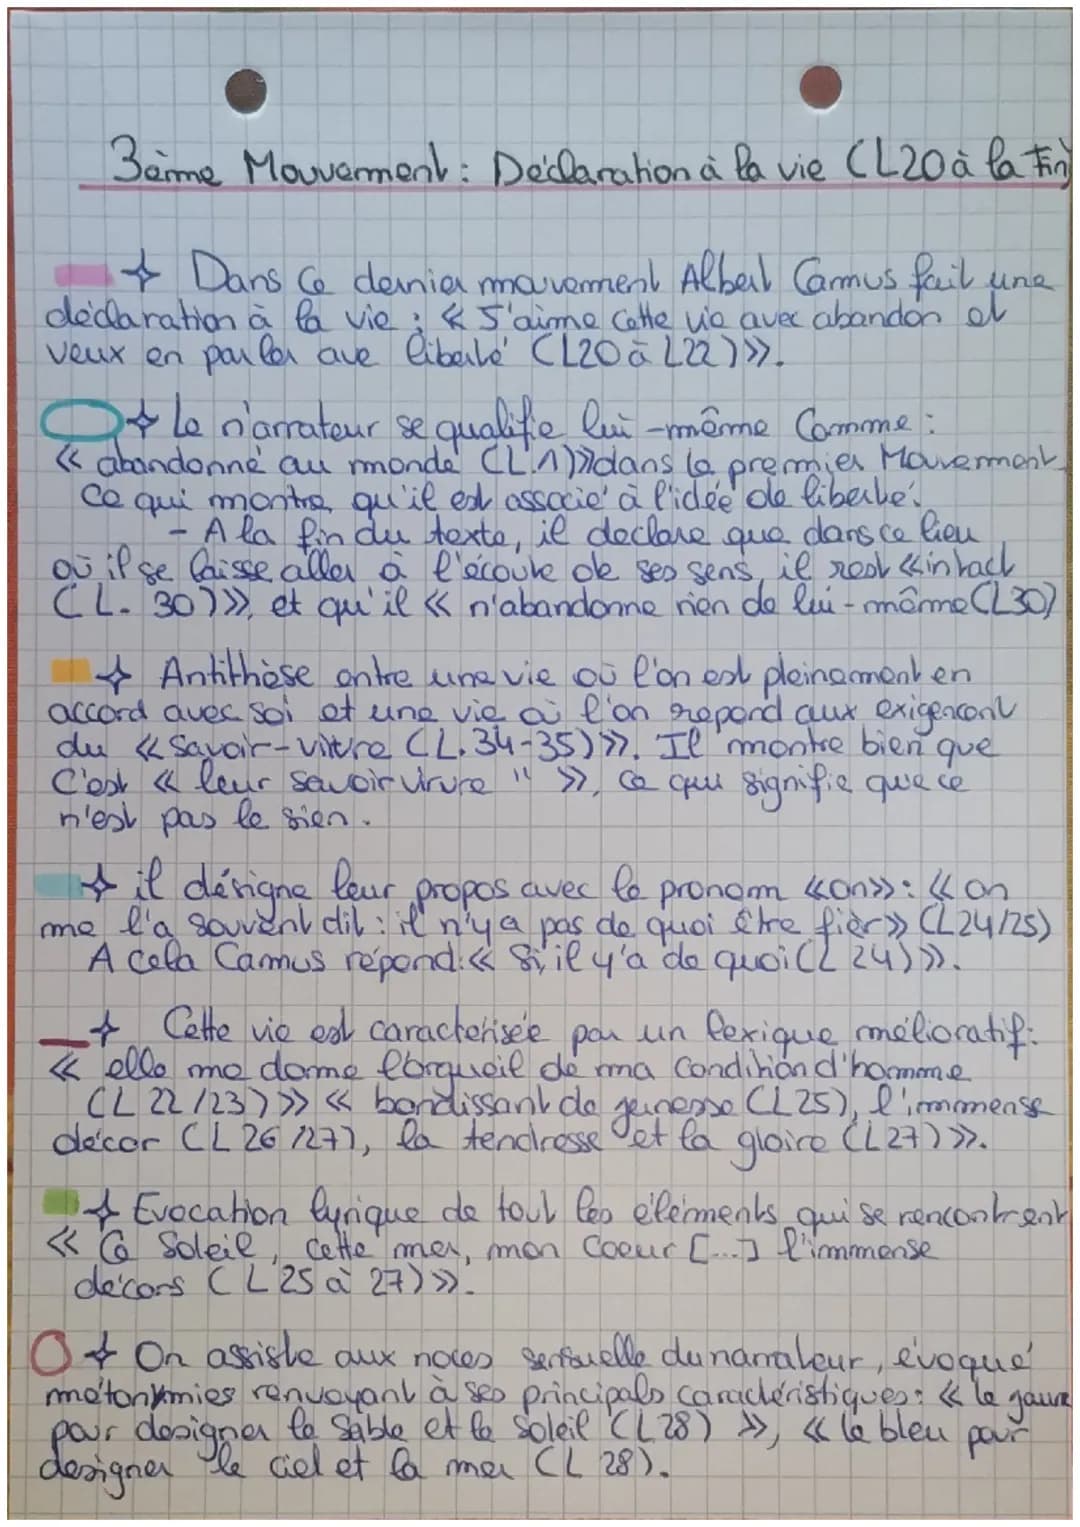 3ème Mouvement : Déclaration à la vie (L20 à la Fin)
Dans ce dernier mouvement Albert Camus fait une
déclaration à la vie : « J'aime cette vie avec abandon et
veux en parler ave liberté (L20 à L22) ».
Le n'arrateur se qualifie lui-même Comme :
« abandonné au monde (L.1) » dans le premier Mouvement
Ce qui montre qu'il est associé à l'idée de liberté.
- A la fin du texte, il declare que dans ce lieu
où il se laisse aller à l'écoute de ses sens, il rest « intact
(L. 30) », et qu'il « n'abandonne rien de lui-même (L30)
Antithèse entre une vie où l'on est pleinement en
accord avec soi et une vie où l'on repond aux exigencent
du « Savoir-vivre (L.34-35) ». Il montre bien que
C'est « leur savoir vivre " », ce qui signifie que ce
n'est pas le sien.
il désigne leur propos avec le pronom « on » : « on
me l'a souvent dit : il n'y a pas de quoi être fier » (L24/25)
A cela Camus répond : « Si, il y'a de quoi (L 24) ».
Cette vie est caracterisée par un lexique mélioratif :
« elle me donne l'orgueil de ma condition d'homme
(L 22/23) » « bondissant de jeunesse (L25), l'immense
décor (L 26/27), la tendresse et la gloire (L27) ».
Evocation lyrique de tout les éléments qui se rencontrent
« Ce Soleil, cette mer, mon Coeur [...] l'immense
décors (L 25 à 27) ».
On assiste aux noces sensuelle du narrateur, évoqué
métonymies renvoyant à ses principals caractéristiques : « le jaune
pour designer le Sable et le Soleil (L28) », « le bleu pour
designer le ciel et la mer (L 28).